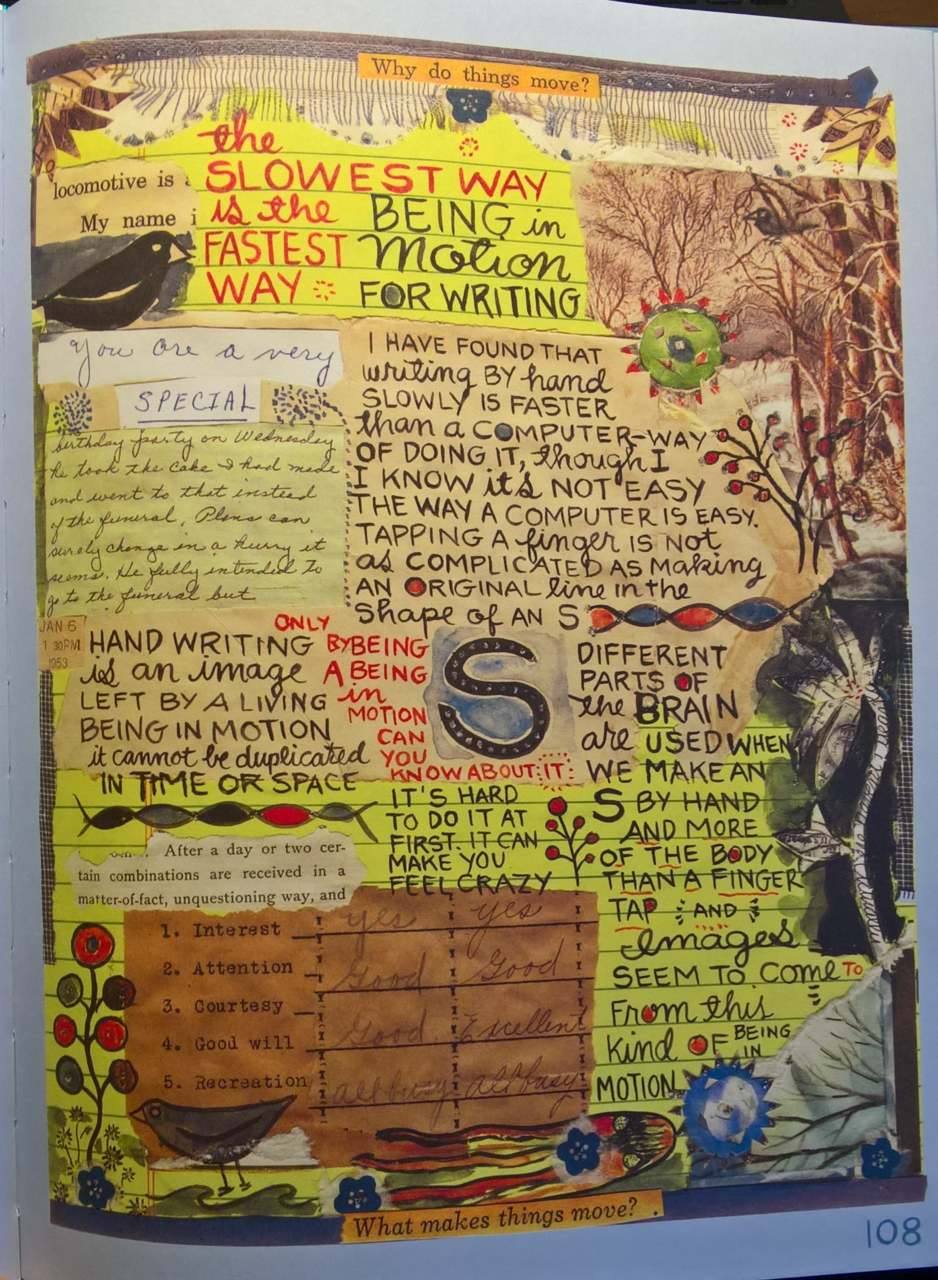 Why do things move?
the
SLOWEST WAY
is the
FASTEST
WAY
BEING in
Motion
FOR WRITING
locomotive is
My name i
you are a very
SPECIAL
birthday party on Wednesday
he took the cake I had made
and went to that instead
of the funeral. Plans can
surely change in a hurry it
seems. He fully intended to
go to the funeral but
I HAVE FOUND THAT
writing BY hand
SLOWLY IS FASTER
than a COMPUTER-WAY
OF DOING IT, though I
I KNOW it's NOT EASY
THE WAY A COMPUTER IS EASY.
TAPPING A finger IS NOT
as COMPLICATED AS Making
AN ORIGINAL line in the
Shape of AN S
JAN 6
1 30PM
1953
HAND WRITING
is an image
LEFT BY A LIVING
BEING IN MOTION
it cannot be duplicated
IN TIME OR SPACE
ONLY
BY BEING
A BEING
in
MOTION
CAN
YOU
KNOW ABOUT IT
S
DIFFERENT
PARTS OF
the BRAIN
are USED WHEN
WE MAKE AN
S BY HAND
AND MORE
OF THE BODY
THAN A FINGER
TAP AND
Images
SEEM TO COME TO
From this
Kind OF BEING
IN
MOTION
IT'S HARD
TO DO IT AT
FIRST. IT CAN
MAKE YOU
FEEL CRAZY
After a day or two cer-
tain combinations are received in a
matter-of-fact, unquestioning way, and
1. Interest yes yes
2. Attention Good Good
3. Courtesy Good Excellent
4. Good will
5. Recreation all busy all busy
What makes things move?
108